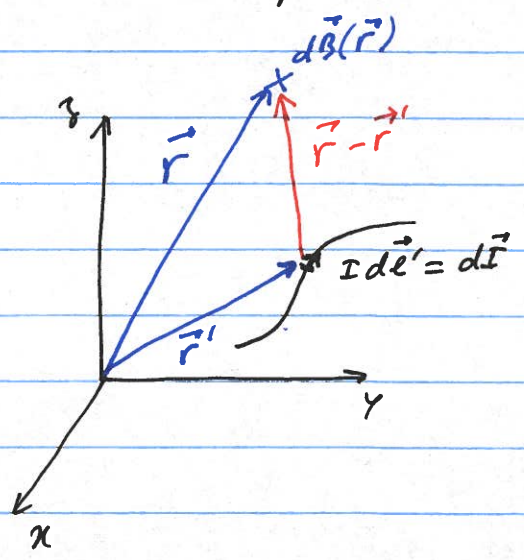 dB⃗(r⃗)
z
r⃗
r⃗ - r⃗'
I dℓ⃗' = dI⃗
r⃗'
y
x